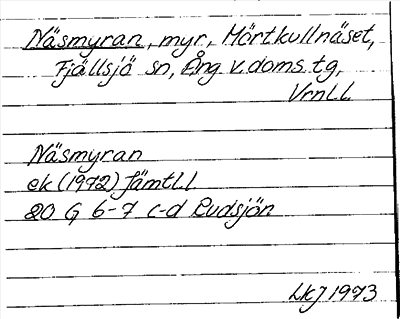 Näsmyran, myr, Mörtkullnäset,
Fjällsjö sn, Ång v. doms. tg,
VrnLL
Näsmyran
ek (1972) JämtLL
20 G 6-7 c-d Rudsjön
LKJ 1973